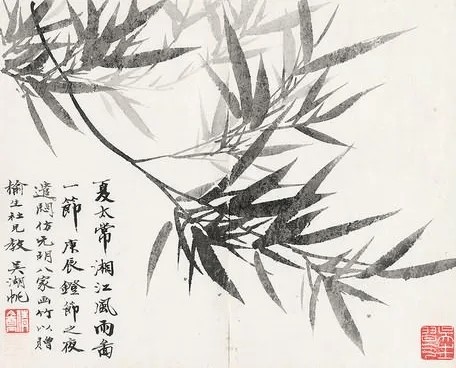 夏太常湘江風雨畜
一節 庚辰鐙節之夜
遣悶仿元明八家畫竹以贈
榆生社兄教 吳湖帆